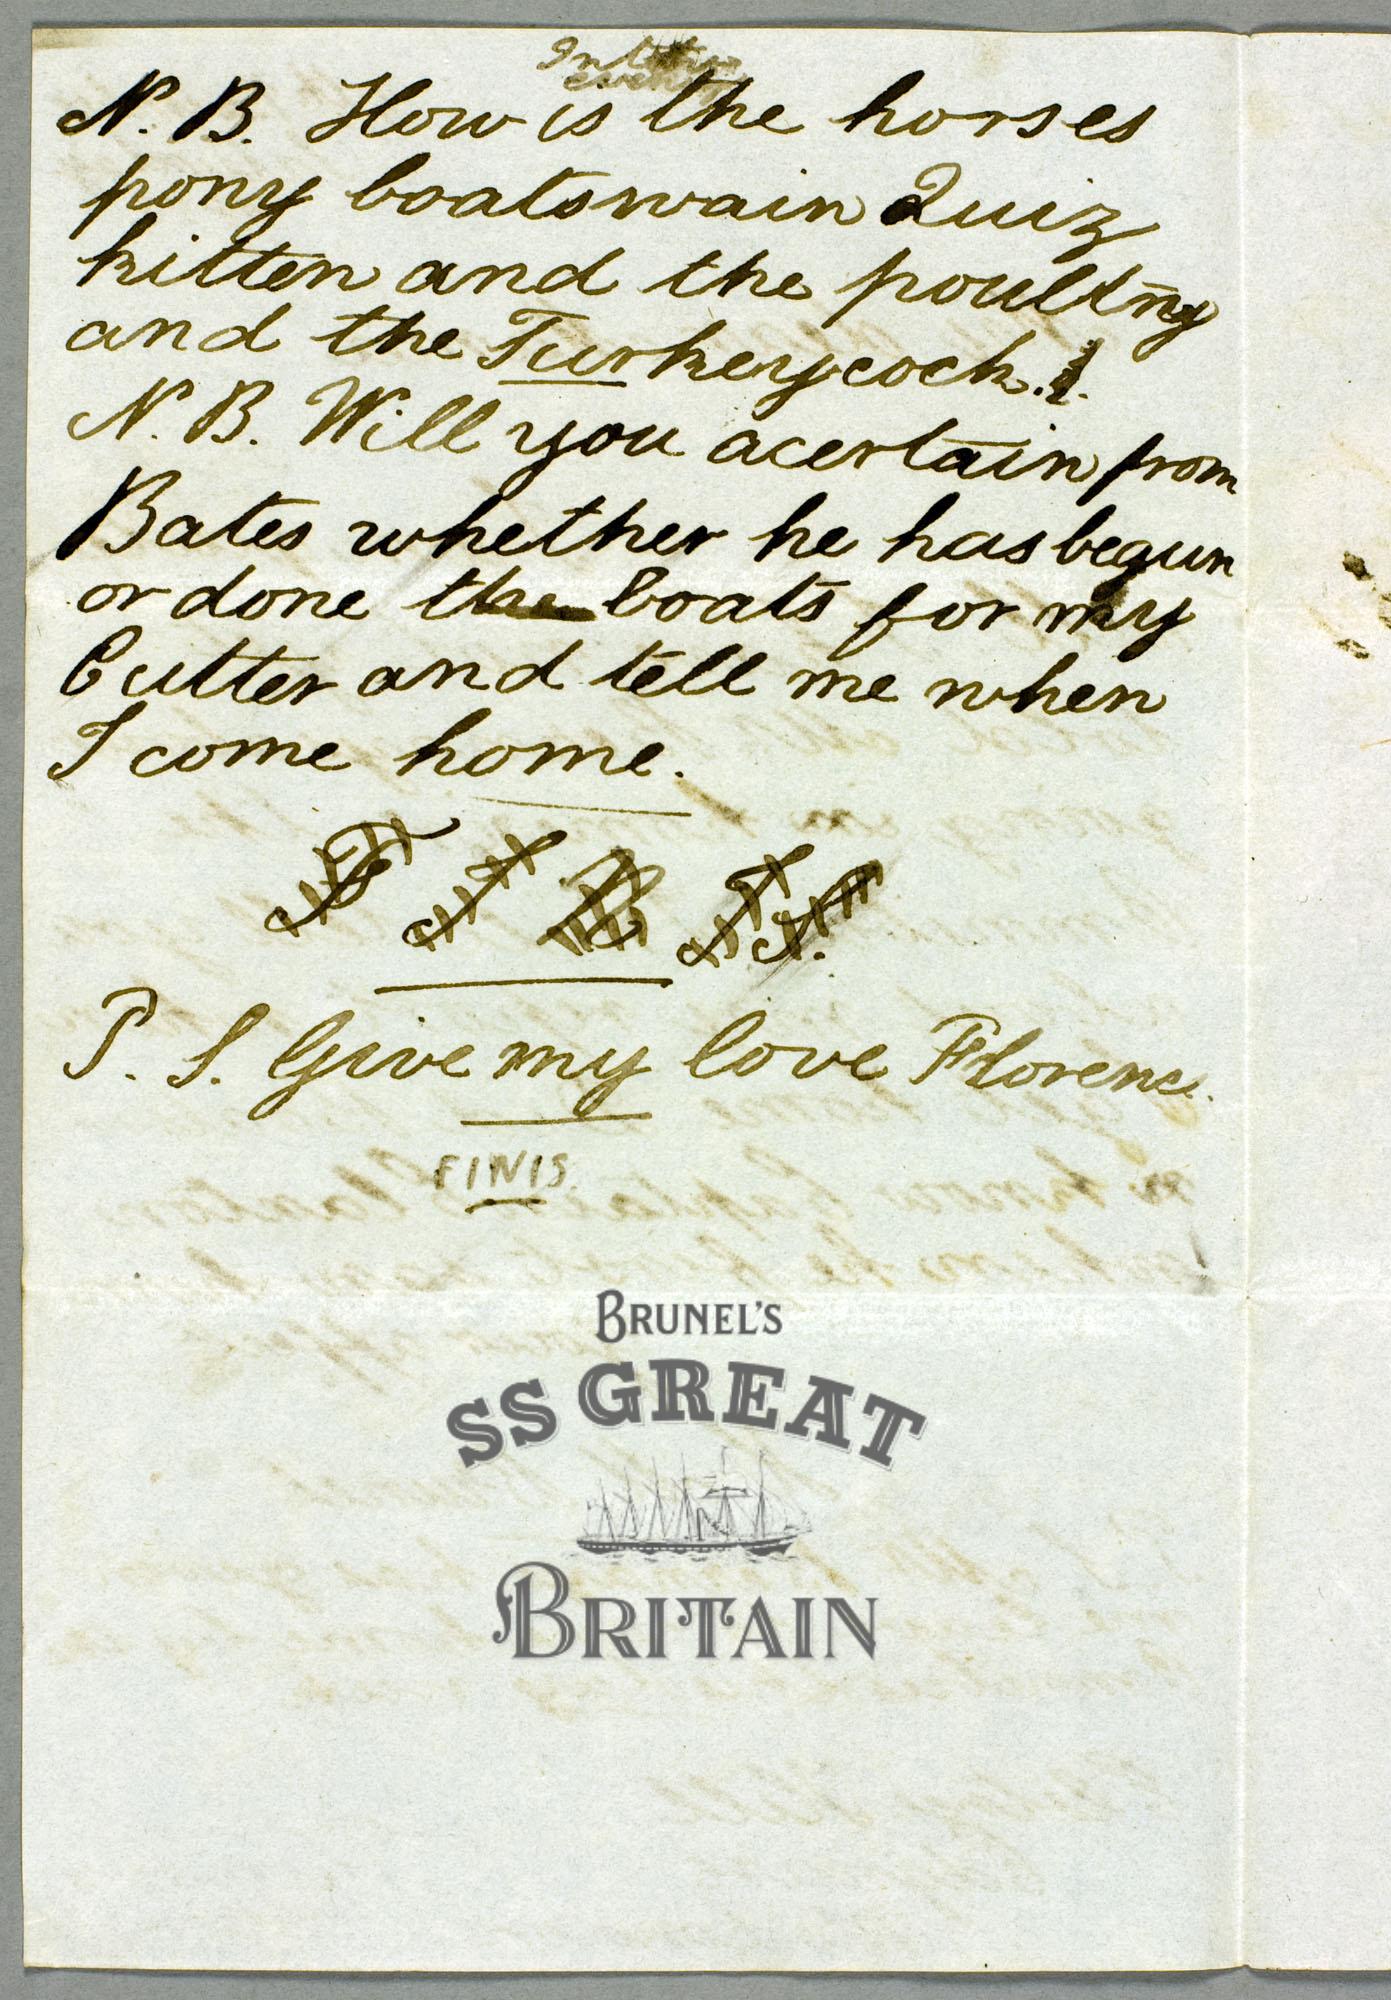 N. B. How is the horses
pony boatswain Quiz
kitten and the poultry
and the Turkeycock.
N. B. Will you acertain from
Bates whether he has begun
or done the boats for my
Cutter and tell me when
I come home.
P. S. Give my love Florence.
FINIS.
BRUNEL'S
SS GREAT
BRITAIN